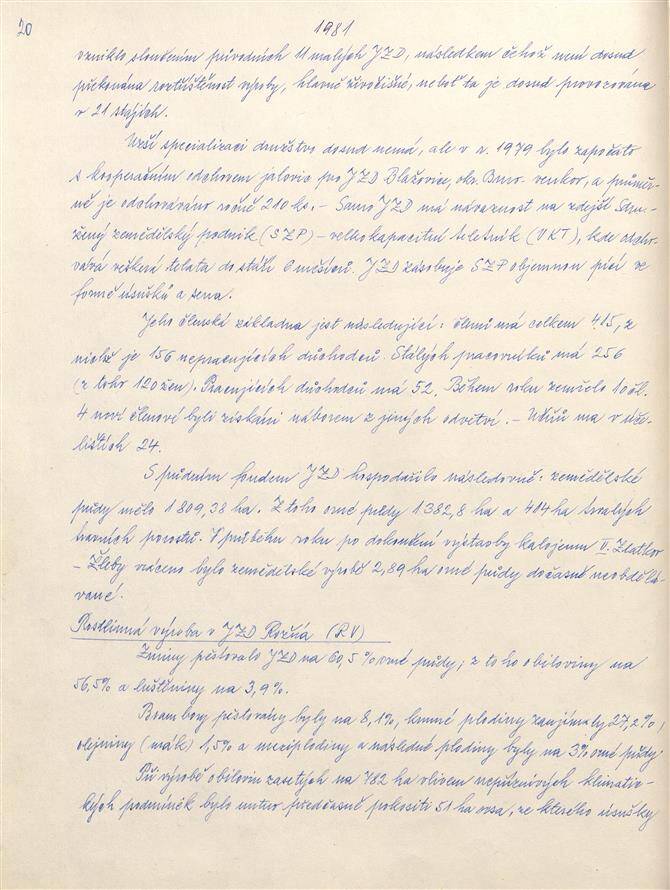 20
1981
vzniklo sloučením původních 11 malých JZD, následkem čehož není dosud
překonána roztříštěnost výroby, hlavně živočišné, neboť ta je dosud provozována
v 21 stájích.
Užší specializaci družstvo dosud nemá, ale v r. 1979 bylo započato
s kooperačním odchovem jalovic pro JZD Blažovice, okr. Brno-venkov, a průměr-
ně je odchováváno ročně 210 ks. – Samo JZD má návaznost na zdejší Sdru-
žený zemědělský podnik (SZP) – velkokapacitní teletník (VKT), kde odcho-
vává veškerá telata do stáří 6 měsíců. JZD zásobuje SZP objemnou pící ve
formě úsušků a sena.
Jeho členská základna jest následující: členů má celkem 415, z
nichž je 156 nepracujících důchodců. Stálých pracovníků má 256
(z toho 120 žen). Pracujících důchodců má 52. Během roku zemřelo 10 čl.
4 noví členové byli získáni náborem z jiných odvětví. – Učňů má v uči-
lištích 24.
S půdním fondem JZD hospodařilo následovně: zemědělské
půdy mělo 1 809,38 ha. Z toho orné půdy 1 382,8 ha a 404 ha trvalých
travních porostů. V průběhu roku po dokončení výstavby kalojemu II. Zlatkov
– Žleby vráceno bylo zemědělské výrobě 2,89 ha orné půdy dočasně neobdělá-
vané.
Rostlinná výroba v JZD Rožná (RV)
Zrniny pěstovalo JZD na 60,5 % orné půdy; z toho obiloviny na
56,5% a luštěniny na 3,9 %.
Brambory pěstovány byly na 8,1%, krmné plodiny zaujímaly 27,2%,
olejniny (mák) 1,5% a meziplodiny a následné plodiny byly na 3% orné půdy.
Při výrobě obilovin zasetých na 782 ha vlivem nepříznivých klimatic-
kých podmínek bylo nutno předčasně pokositi 51 ha ovsa, ze kterého úsušky